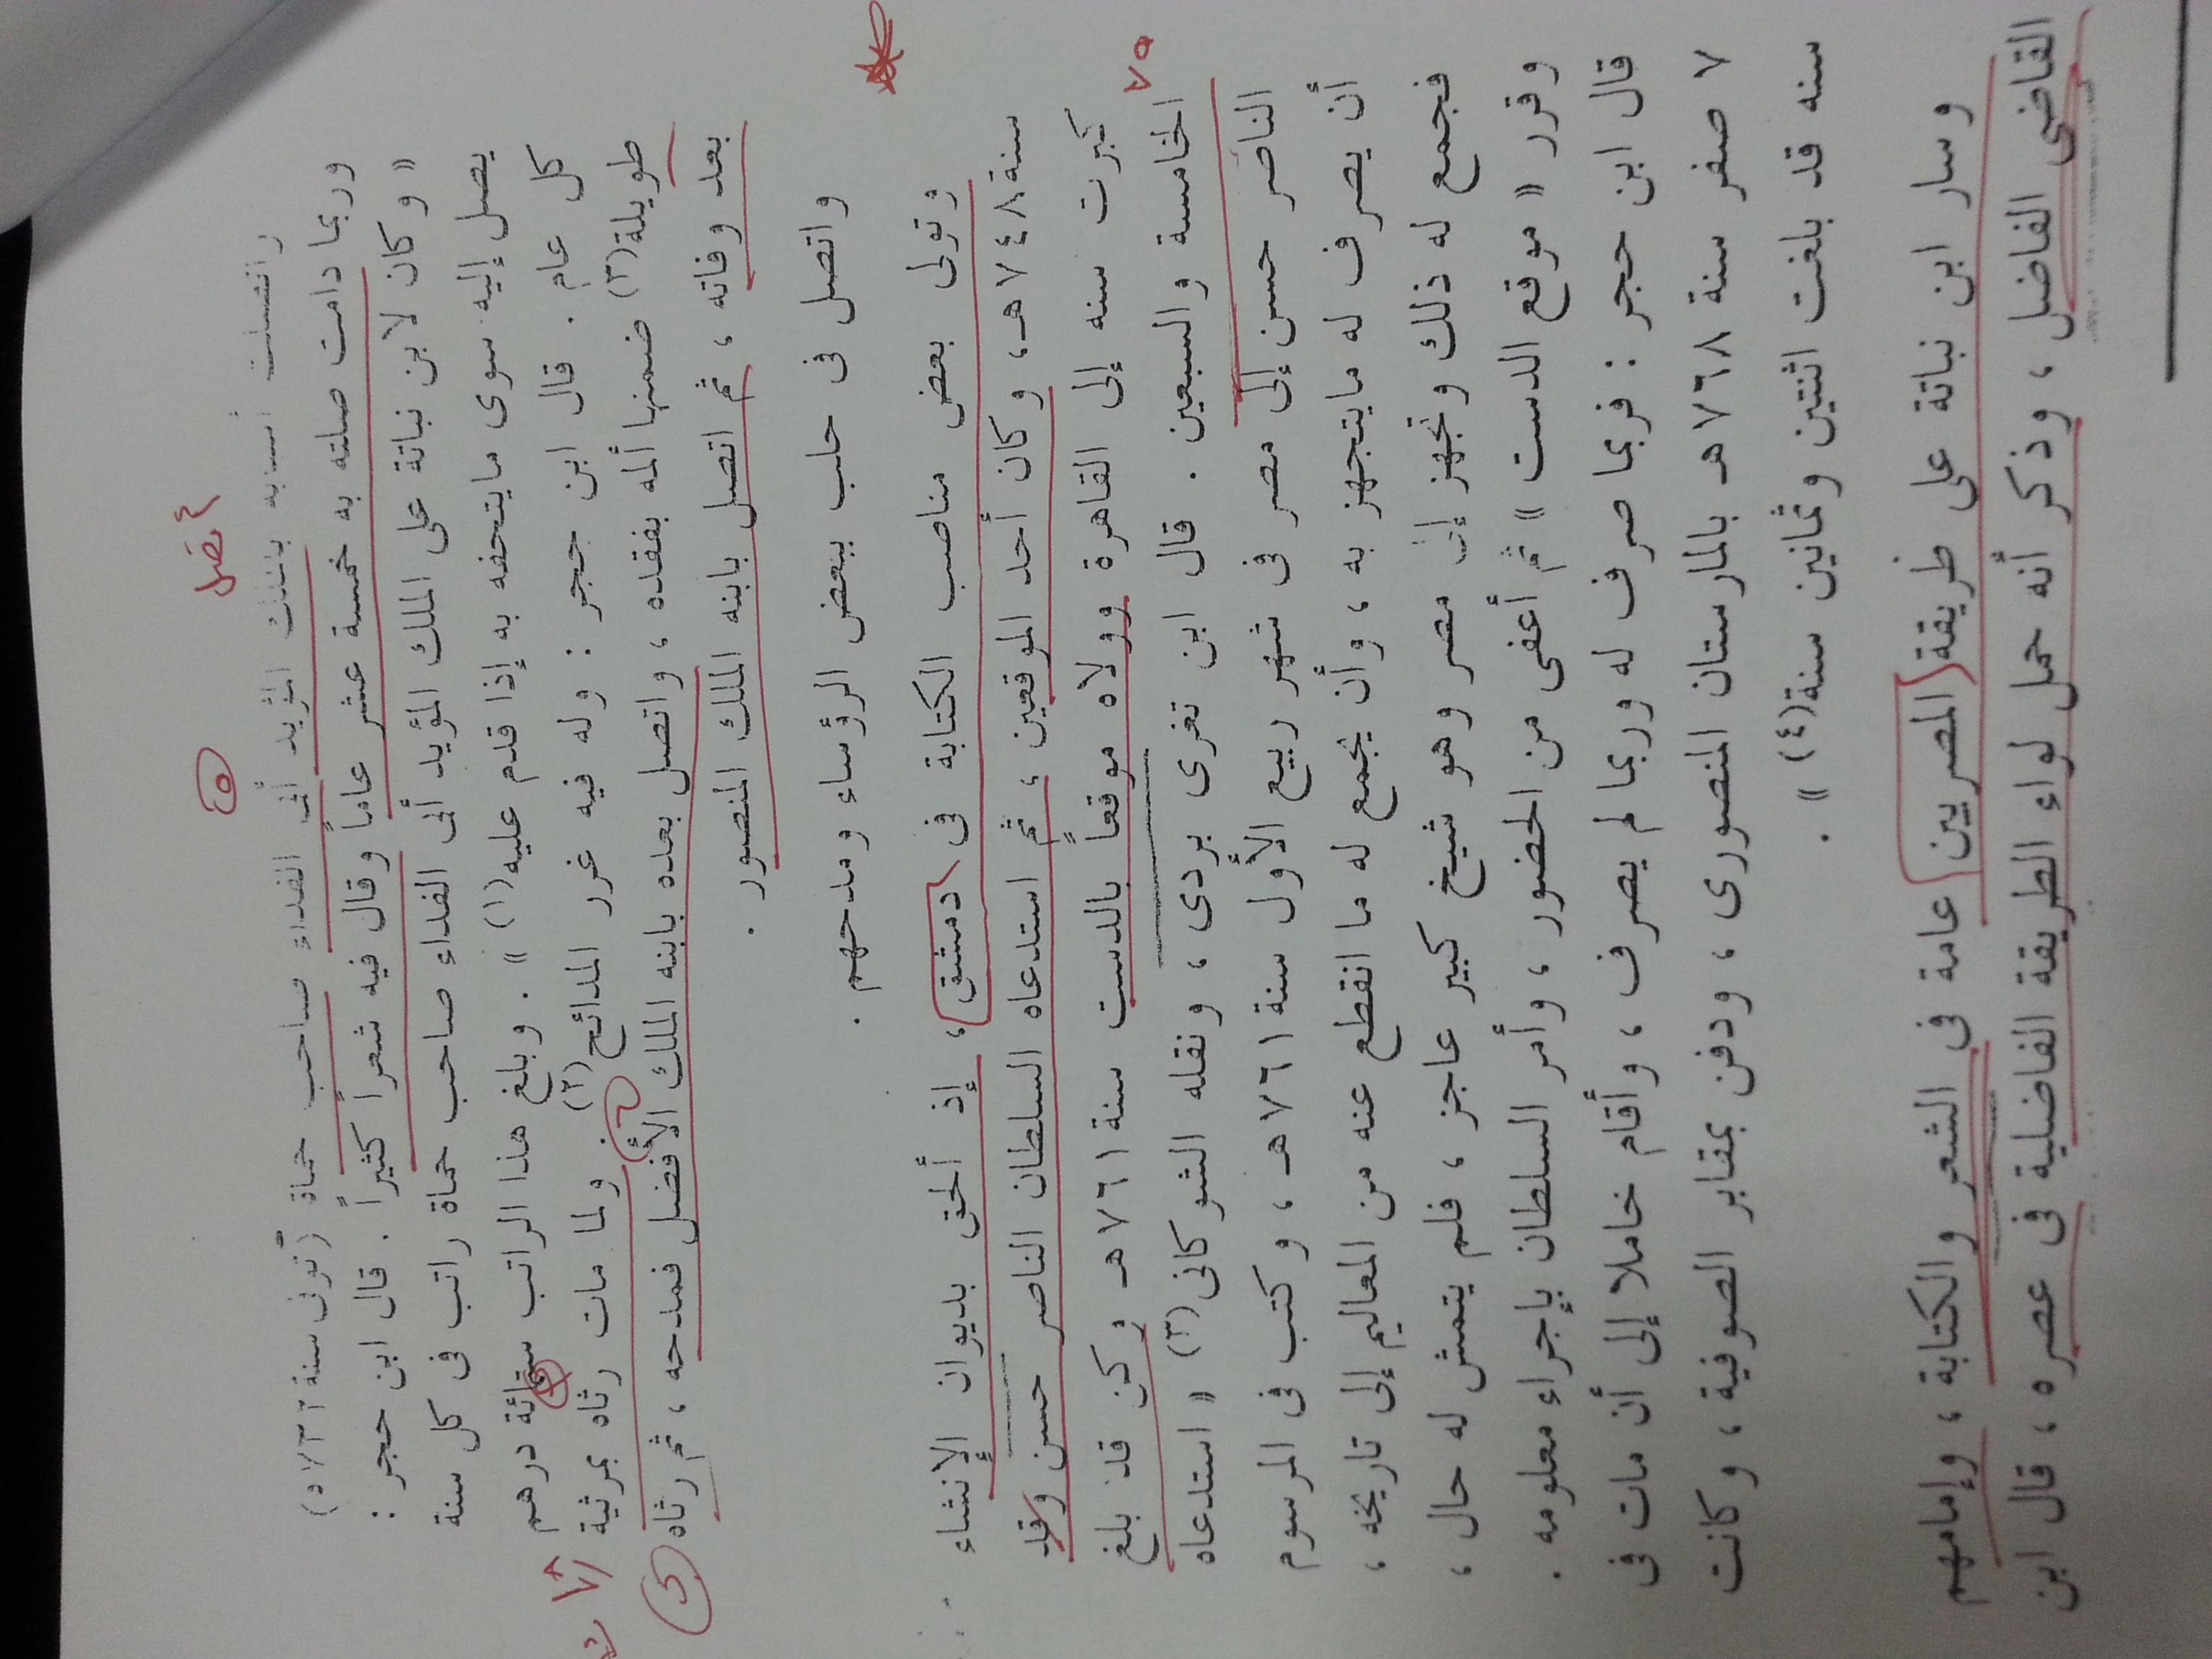 اتصل
٥
واتصلت أسبابه بالملك المؤيد أبى الفداء صاحب حماة (توفى سنة ٧٣٢ هـ)
وربما دامت صلته به خمسة عشر عاماً وقال فيه شعراً كثيراً . قال ابن حجر :
« وكان لابن نباتة على الملك المؤيد أبى الفداء صاحب حماة راتب فى كل سنة
يصل إليه سوى مايتحفه به إذا قدم عليه(١) » . وبلغ هذا الراتب ستمائة درهم
كل عام . قال ابن حجر : وله فيه غرر المدائح(٢) . ولما مات رثاه بمرثية
طويلة(٣) ضمنها ألمه بفقده ، واتصل بعده بابنه الملك الأفضل فمدحه ، ثم رثاه
بعد وفاته ، ثم اتصل بابنه الملك المنصور .
واتصل فى حلب ببعض الرؤساء ومدحهم .
وتولى بعض مناصب الكتابة فى دمشق ، إذ ألحق بديوان الإنشاء
سنة ٧٤٨ هـ، وكان أحد الموقعين ، ثم استدعاه السلطان الناصر حسن وقد
كبرت سنه إلى القاهرة وولاه موقعاً بالدست سنة ٧٦١ هـ وكان قد بلغ
٧٥
الخامسة والسبعين . قال ابن تغرى بردى ، ونقله الشوكانى(٣) « استدعاه
الناصر حسن إلى مصر فى شهر ربيع الأول سنة ٧٦١ هـ ، وكتب فى المرسوم
أن يصرف له مايتجهز به ، وأن يجمع له ما انقطع عنه من المعاليم إلى تاريخه ،
فجمع له ذلك وتجهز إلى مصر وهو شيخ كبير عاجز ، فلم يتمش له حال ،
وقرر « موقع الدست » ثم أعفى من الحضور ، وأمر السلطان بإجراء معلومه .
قال ابن حجر : فربما صرف له وربما لم يصرف ، وأقام خاملا إلى أن مات فى
٧ صفر سنة ٧٦٨ هـ بالمارستان المنصورى ، ودفن بمقابر الصوفية ، وكانت
سنه قد بلغت اثنتين وثمانين سنة(٤) » .
وسار ابن نباتة على طريقة المصريين عامة فى الشعر والكتابة ، وإمامهم
القاضى الفاضل ، وذكر أنه حمل لواء الطريقة الفاضلية فى عصره ، قال ابن